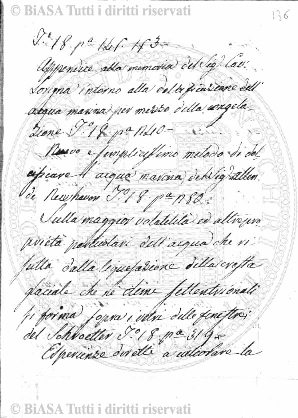 © BIASA Tutti i diritti riservati
136
T.° 18 p.a 146. 153.
Appendice alla memoria del Sig. Cav.
Lorgna intorno alla dolcificazione dell'
acqua marina per mezzo della congela
zione T.° 18 p.a 1440 -
Nuovo e semplicissimo metodo di dol
cificare l'acqua marina del Sig. allen
de Newham T.° 18 p.a 180 -
Sulla maggior volatilità ed altre pro
prietà particolari dell'acqua che ri
sulta dalla liquefazione della crosta
glaciale che ne' climi settentrionali
si forma sopra i vetri delle finestre
del Schroetter T.° 18 p.a 319 -
Esperienze dirette a calcolare la
© BIASA Tutti i diritti riservati